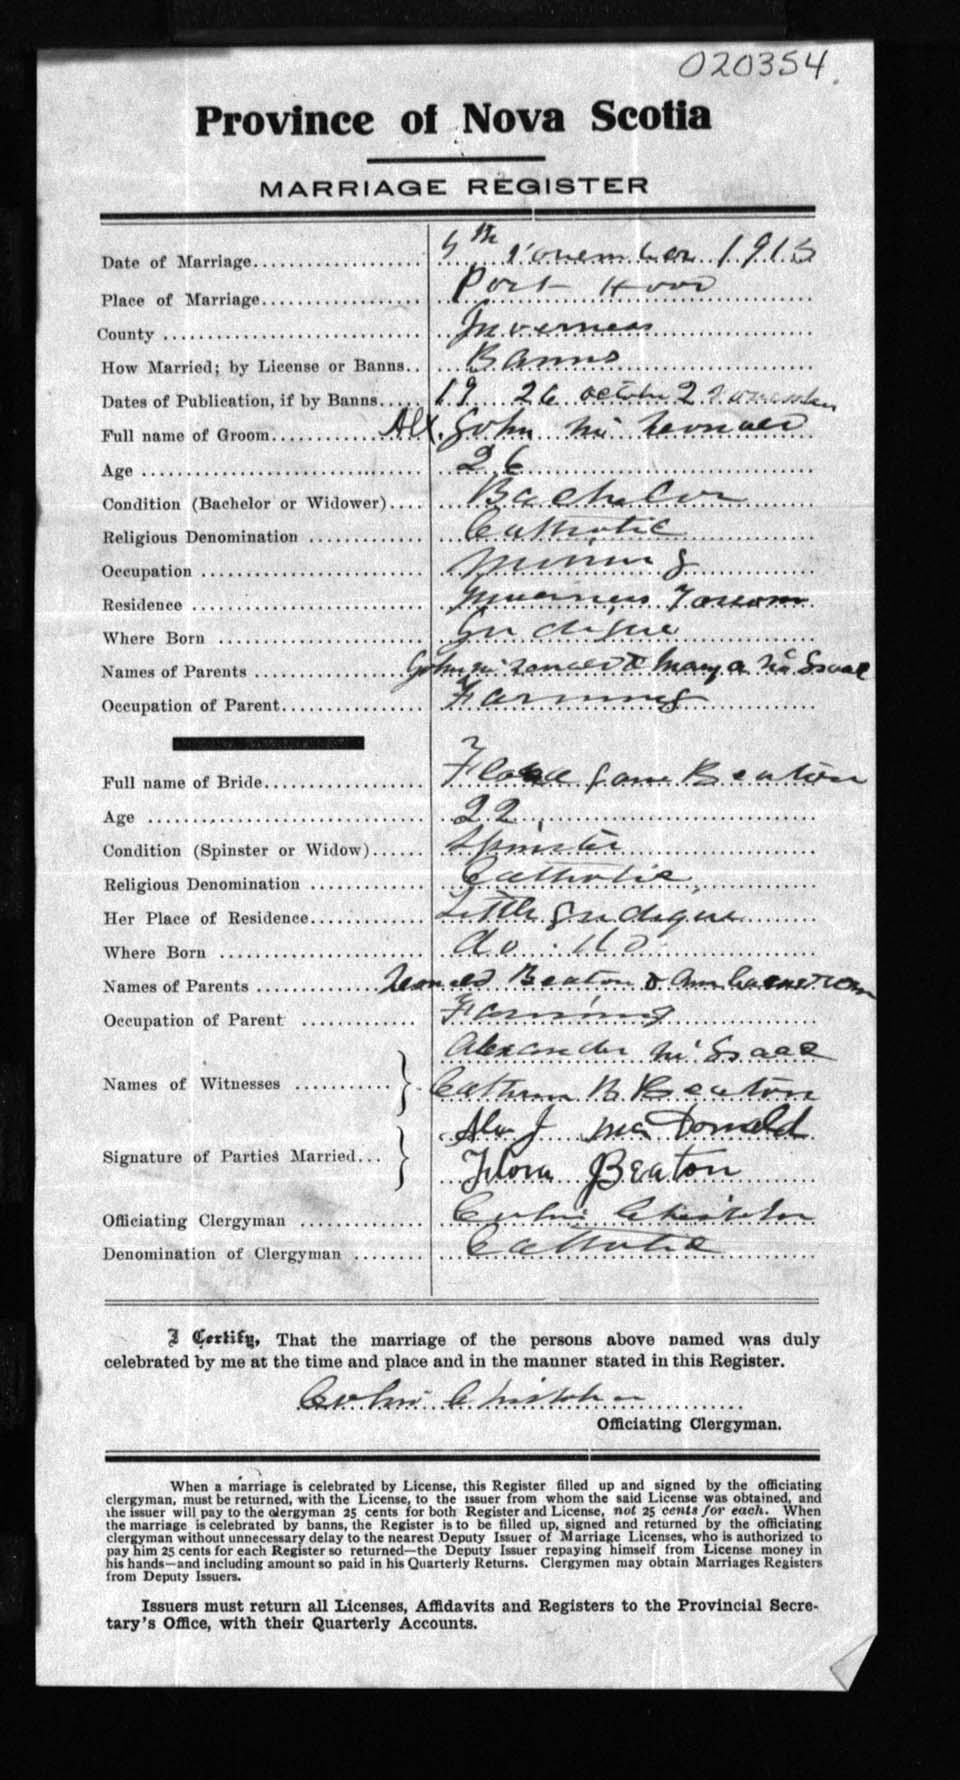 020354
Province of Nova Scotia
MARRIAGE REGISTER
Date of Marriage 5th November 1913
Place of Marriage Port Hood
County Inverness
How Married; by License or Banns Banns
Dates of Publication, if by Banns 19 26 octobr 2 november
Full name of Groom Alx. John Mc Donald
Age 26
Condition (Bachelor or Widower) Bachelor
Religious Denomination Catholic
Occupation Mining
Residence Inverness Town
Where Born Judique
Names of Parents John Mc Donald & Mary A Mc Isaac
Occupation of Parent Farming
Full name of Bride Flora Jane Beaton
Age 22
Condition (Spinster or Widow) Spinster
Religious Denomination Catholic
Her Place of Residence Little Judique
Where Born do do
Names of Parents Donald Beaton & Ann Cameron
Occupation of Parent Farming
Alexander Mc Isaac
Names of Witnesses
Beaton
Alex J MacDonald
Signature of Parties Married
Flora Beaton
Officiating Clergyman Colin Chisholm
Denomination of Clergyman Catholic
I Certify, That the marriage of the persons above named was duly
celebrated by me at the time and place and in the manner stated in this Register.
Colin Chisholm
Officiating Clergyman.
When a marriage is celebrated by License, this Register filled up and signed by the officiating
clergyman, must be returned, with the License, to the issuer from whom the said License was obtained, and
the issuer will pay to the clergyman 25 cents for both Register and License, not 25 cents for each. When
the marriage is celebrated by banns, the Register is to be filled up, signed and returned by the officiating
clergyman without unnecessary delay to the nearest Deputy Issuer of Marriage Licenses, who is authorized to
pay him 25 cents for each Register so returned—the Deputy Issuer repaying himself from License money in
his hands—and including amount so paid in his Quarterly Returns. Clergymen may obtain Marriages Registers
from Deputy Issuers.
Issuers must return all Licenses, Affidavits and Registers to the Provincial Secre-
tary's Office, with their Quarterly Accounts.